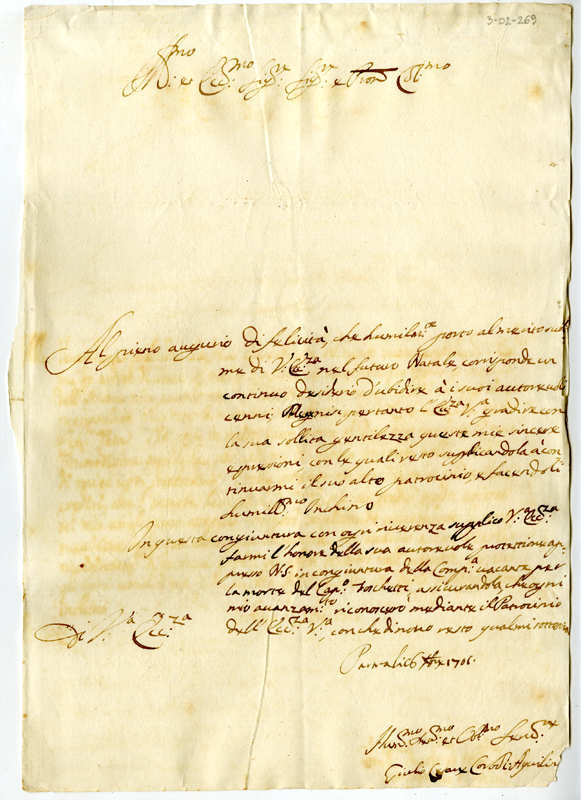 3-02-269
Ill.mo et Ecc.mo Sig.re Sig.re e Pron Col.mo
Al pieno augurio di felicità, che humilm.te porto al merito subli
me di V.ra Ecc.za nel futuro Natale, corrisponde un
continuo desiderio d'ubidire à i suoi autorevoli
cenni. Degnisi pertanto l'Ecc.za V.ra gradire con
la sua solita gentilezza queste mie sincere
espressioni, con le quali resto supplicandola à con
tinuarmi il suo alto patrocinio, e facendoli
humiliss.mo Inchino
In questa congiuntura con ogni riverenza supplico V.ra Ecc.za
farmi l'honore della sua autorevole protettione ap
presso N.S. in congiuntura della Comp.a vacante per
la morte del Cap.o assicurandola che ogni
mio avanzam.to riconoscerò mediante il Patrocinio
dell'Ecc.za V.ra, con che di novo resto qual mi
Di V.ra Ecc.za
li 6 Xbre 1701
Hum.mo Dev.mo et Obl.mo Serv.re
Giulio Cesare